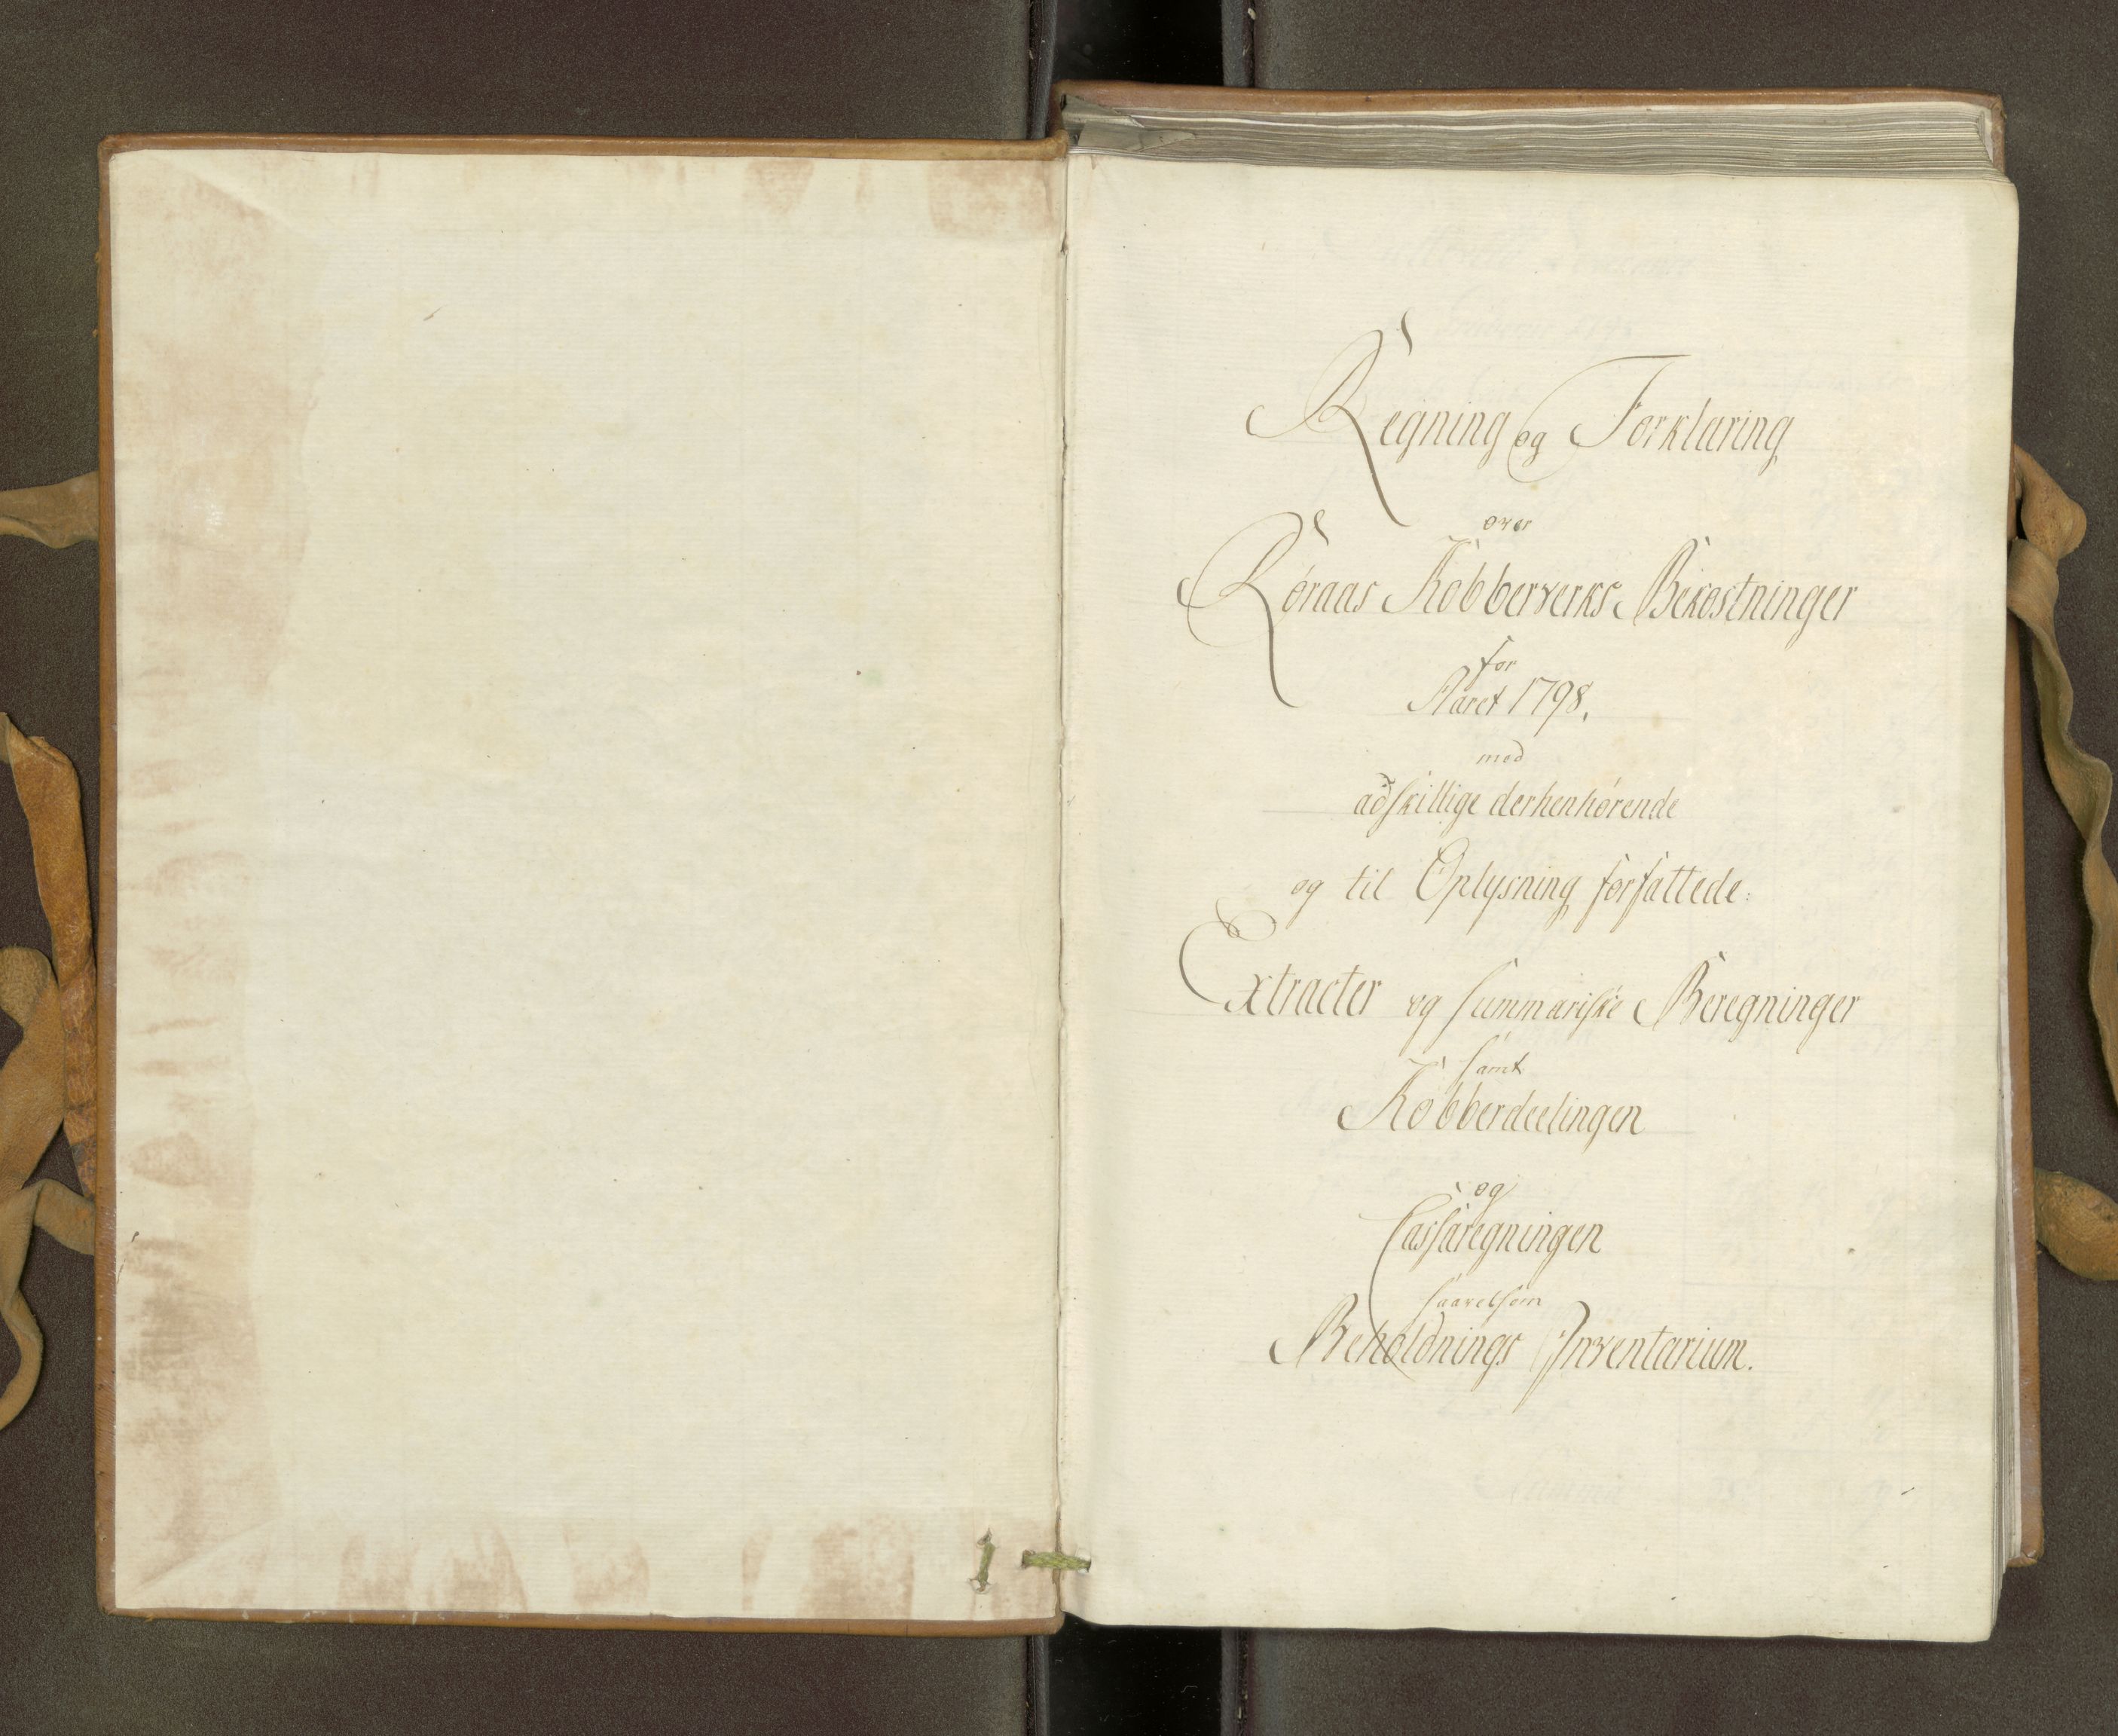 Regning og Forklaring
over
Røraas Kobberverks Bekostninger
for
Aaret 1798.
med
adskillige derhenhørende
og til Oplysning forfattede:
Extracter og summariske Beregninger
samt
Kobberdeelingen
og
Cassaregningen
saavelsom
Beholdnings Inventarium.